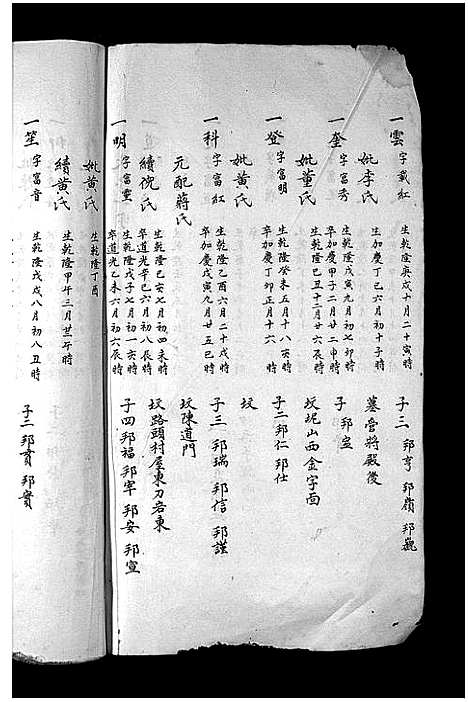 一雲 字裁紅 生乾隆庚戌十月二十寅時 子三 邦亨 邦嶺 邦巍
妣李氏 生加慶丁巳六月初十子時 墓營將殿後
一奎 字富秀 生乾隆戊寅九月初七卯時 卒加慶甲子二月二申時 子 邦宣
妣董氏 生乾隆己丑十二月廿六辰時 坟坭山西金字面
一登 字富明 生乾隆癸未五月十八亥時 卒加慶丁卯正月十六 時 子二 邦仁 邦仕
妣黄氏 坟
一科 字富紅 生乾隆乙酉六月二十戌時 卒加慶戊寅九月廿五巳時 子三 邦瑞 邦信 邦謹
元配蔣氏 坟陳道門
續倪氏 生乾隆己亥七月初四未時 卒道光辛巳六月初八辰時 坟路頭村屋東刀岩東
一明 字富重 生乾隆戊子七月初一亥時 卒道光乙未六月初六辰時 子四 邦福 邦寧 邦安 邦宣
妣黄氏 生乾隆丁酉
續黄氏 生乾隆甲午三月廿午時
一笙 字富音 生乾隆戊戌八月初八丑時 子二 邦賓 邦實